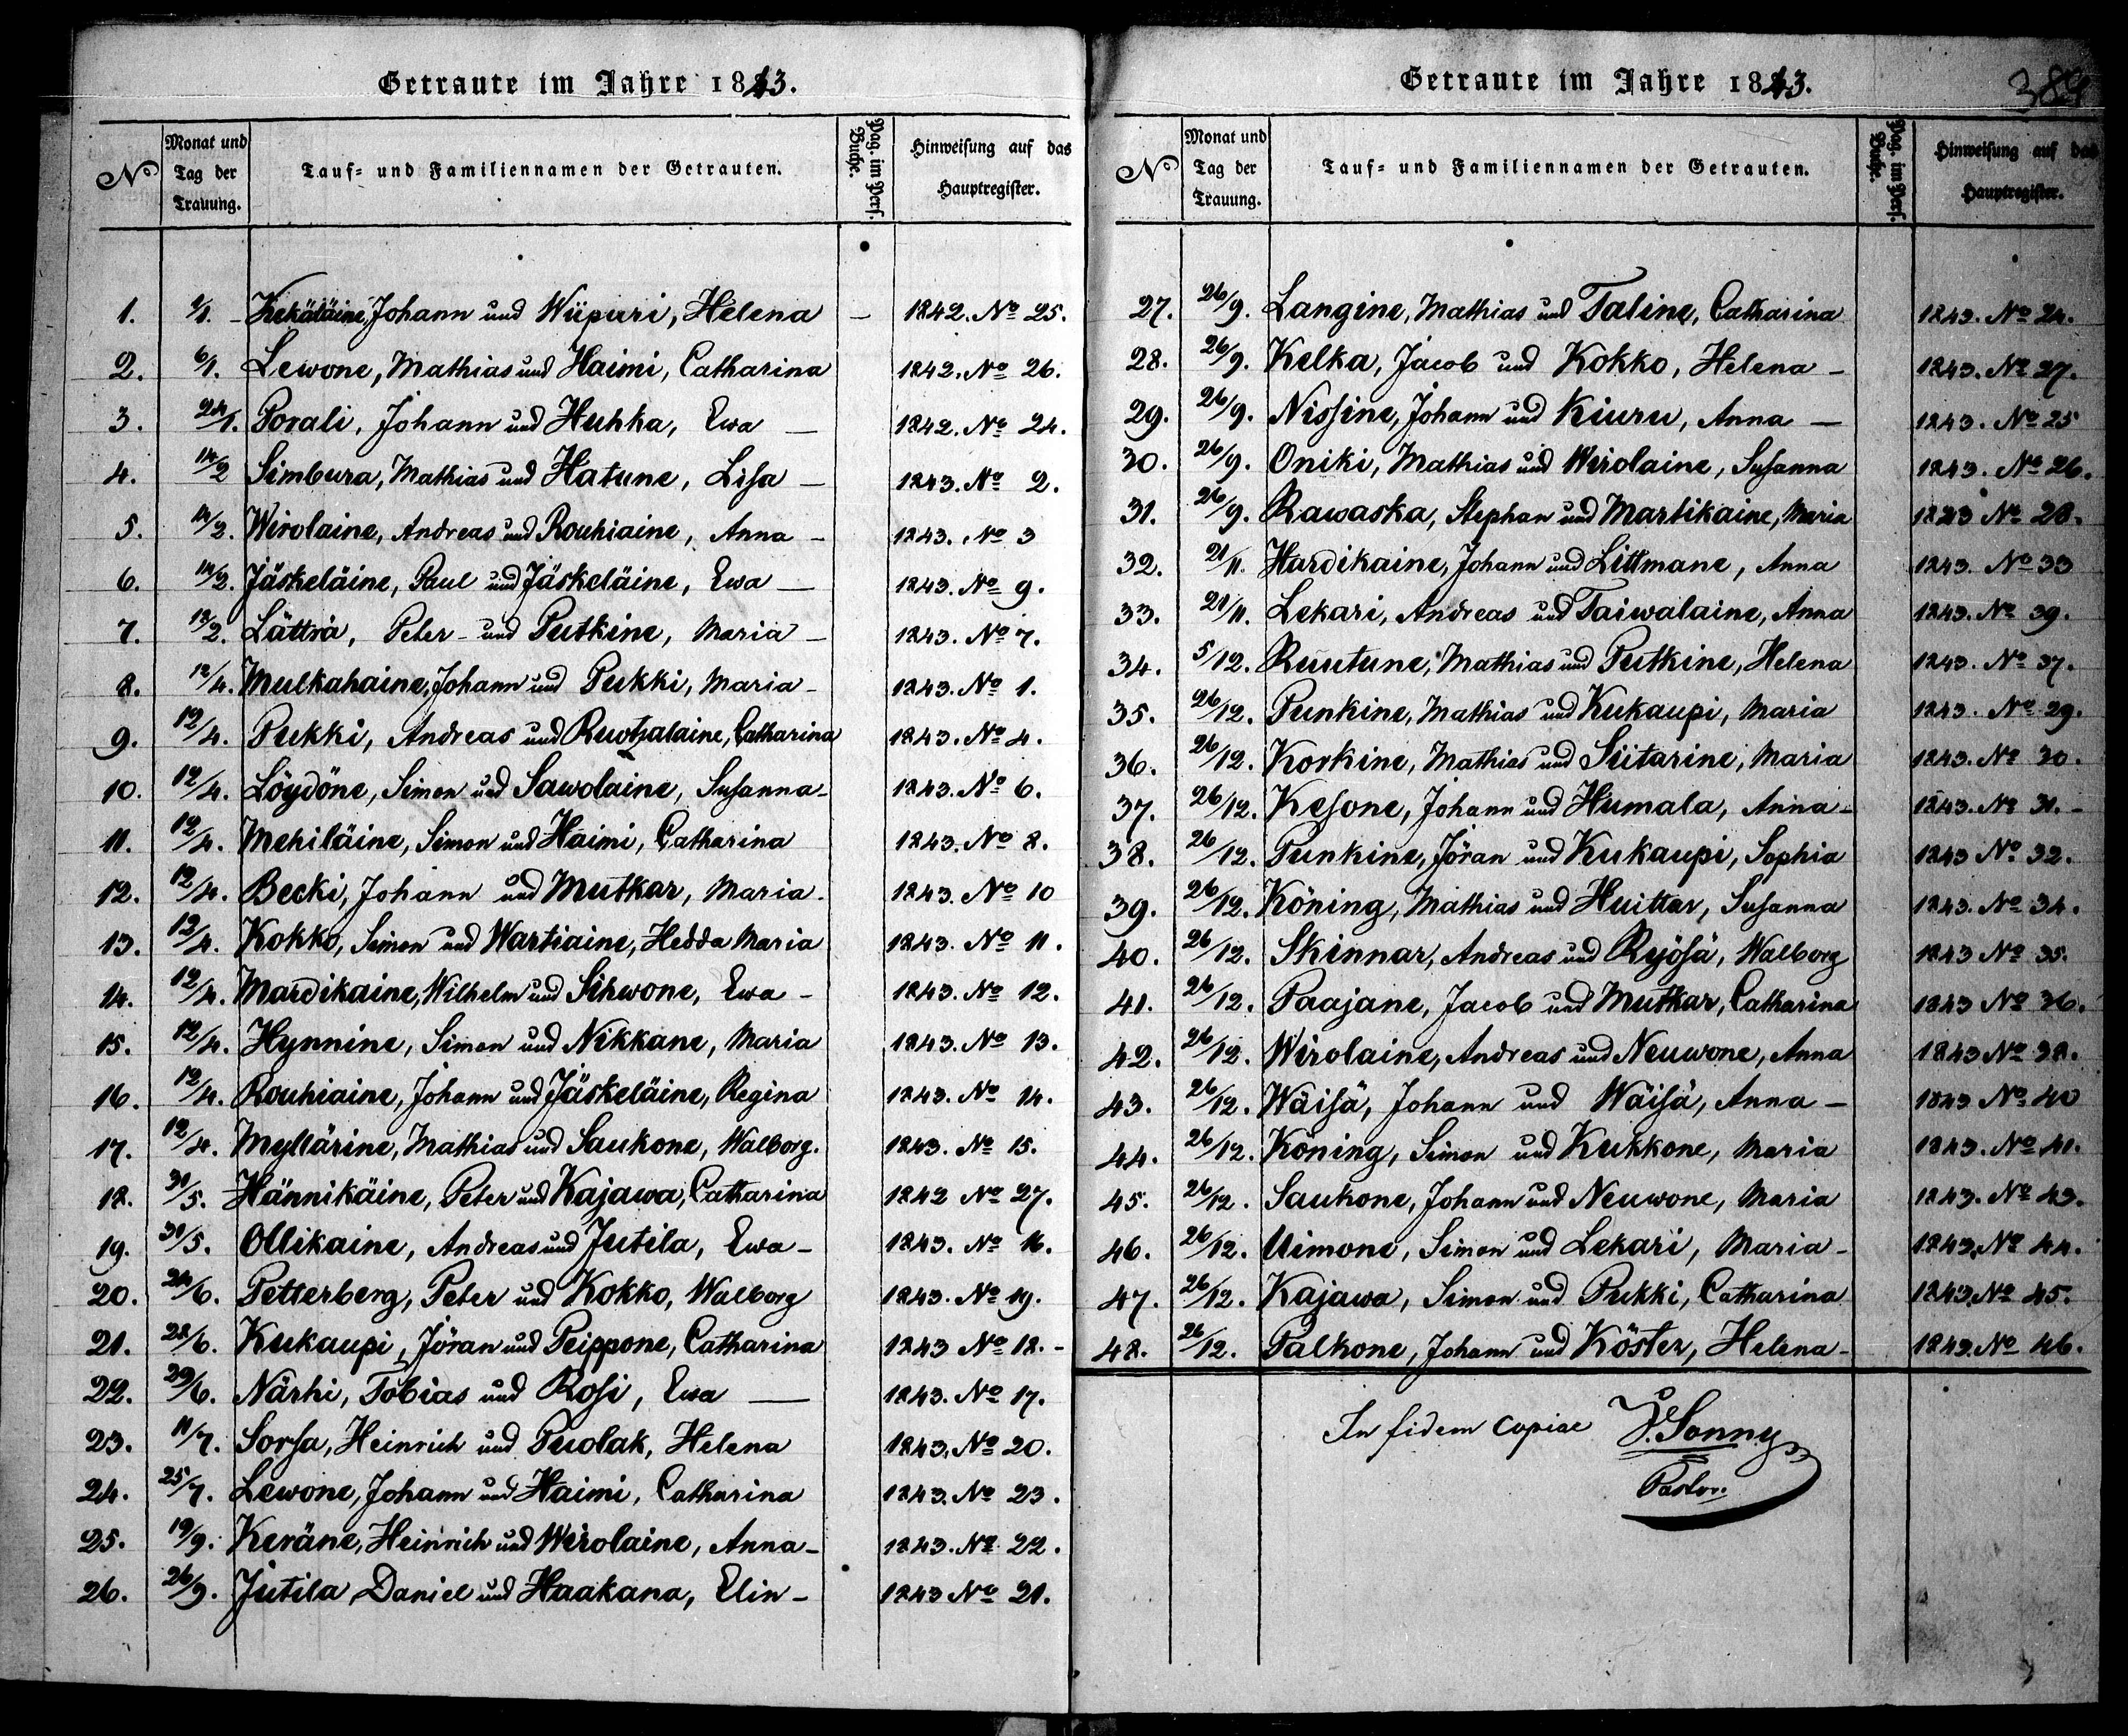 Getraute im Jahre 1843.
N° Monat und Tag der Trauung. Tauf- und Familiennamen der Getrauten. Pag. im Pers. Buche. Hinweisung auf das Hauptregister.
1. /1. Kekäläine, Johann und Wiipuri, Helena – 1842. No 25.
2. 6/1. Lewone, Mathias und Haimi, Catharina 1842. No 26.
3. 24/1. Porali, Johann und Huhka, Ewa — 1842. No 24.
4. 14/2 Simbura, Mathias und Hatune, Lisa — 1843. No 2.
5. 14/2. Wirolaine, Andreas und Rouhiaine, Anna – 1843. No 3
6. 14/2. Jäskeläine, Paul und Jäskeläine, Ewa — 1843. No 9.
7. 18/2. Lätträ, Peter – und Putkine, Maria – 1843. No 7.
8. 12/4. Mulkahaine, Johann und Pukki, Maria – 1843. No 1.
9. 12/4. Pukki, Andreas und Ruotsalaine, Catharina 1843. No 4.
10. 12/4. Löydöne, Simon und Sawolaine, Susanna – 1843. No 6.
11. 12/4. Mehiläine, Simon und Haimi, Catharina 1843. No 8.
12. 12/4. Becki, Johann und Mutkar, Maria. 1843. No 10
13. 12/4. Kokko, Simon und Wartiaine, Hedda Maria 1843. No 11.
14. 12/4. Mardikaine, Wilhelm und Sihwone, Ewa – 1843. No 12.
15. 12/4. Hynnine, Simon und Nikkane, Maria 1843. No 13.
16. 12/4. Rouhiaine, Johann und Jäskeläine, Regina 1843. No 14.
17. 12/4. Myllärine, Mathias und Saukone, Walborg. 1843. No 15.
18. 31/5. Hännikäine, Peter und Kajawa, Catharina 1842 No 27.
19. 31/5. Ollikaine, Andreas und Jutila, Ewa – 1843. No 16.
20. 24/6. Petterberg, Peter und Kokko, Walborg 1843. No 19.
21. 28/6. Kukaupi, Jöran und Peippone, Catharina 1843 No 18. –
22. 29/6. Närhi, Tobias und Rosi, Ewa — 1843. No 17.
23. 11/7. Sorsa, Heinrich und Puolak, Helena 1843. No 20.
24. 25/7. Lewone, Johann und Haimi, Catharina 1843. No 23.
25. 19/9. Keräne, Heinrich und Wirolaine, Anna – 1843. No 22.
26. 26/9. Jutila, Daniel und Haakana, Elin – 1843 No 21.
Getraute im Jahre 1843.
N° Monat und Tag der Trauung. Tauf- und Familiennamen der Getrauten. Pag. im Pers. Buche. Hinweisung auf das Hauptregister.
27. 26/9. Langine, Mathias und Taline, Catharina 1843. No 24.
28. 26/9. Kelka, Jacob und Kokko, Helena – 1843. No 27.
29. 26/9. Nissine, Johann und Kiuru, Anna – 1843. No 25
30. 26/9. Oniki, Mathias und Wirolaine, Susanna 1843. No 26.
31. 26/9. Rawaska, Stephan und Martikaine, Maria 1843 No 28.
32. 21/11. Hardikaine, Johann und Littmane, Anna 1843. No 33
33. 21/11. Lekari, Andreas und Taiwalaine, Anna 1843. No 39.
34. 5/12. Ruutune, Mathias und Putkine, Helena 1843. No 37.
35. 26/12. Punkine, Mathias und Kukaupi, Maria 1843. No 29.
36. 26/12. Korkine, Mathias und Siitarine, Maria 1843. No 30.
37. 26/12. Kesone, Johann und Humala, Anna – 1843. No 31. –
38. 26/12. Punkine, Jöran und Kukaupi, Sophia 1843 No 32.
39. 26/12. Köning, Mathias und Huittar, Susanna 1843. No 34.
40. 26/12. Skinnar, Andreas und Ryösä, Walborg 1843 No 35.
41. 26/12. Paajane, Jacob und Mutkar, Catharina 1843 No 36.
42. 26/12. Wirolaine, Andreas und Neuwone, Anna 1843 No 38.
43. 26/12. Wäisä, Johann und Wäisä, Anna – 1843 No 40
44. 26/12. Köning, Simon und Kukkone, Maria 1843. No 41.
45. 26/12. Saukone, Johann und Neuwone, Maria 1843. No 43.
46. 26/12. Uimone, Simon und Lekari, Maria – 1843. No 44.
47. 26/12. Kajawa, Simon und Pukki, Catharina 1843. No 45.
48. 26/12. Palkone, Johann und Köster, Helena – 1843. No 46.
In fidem copiae J. Sonny
Pastor.